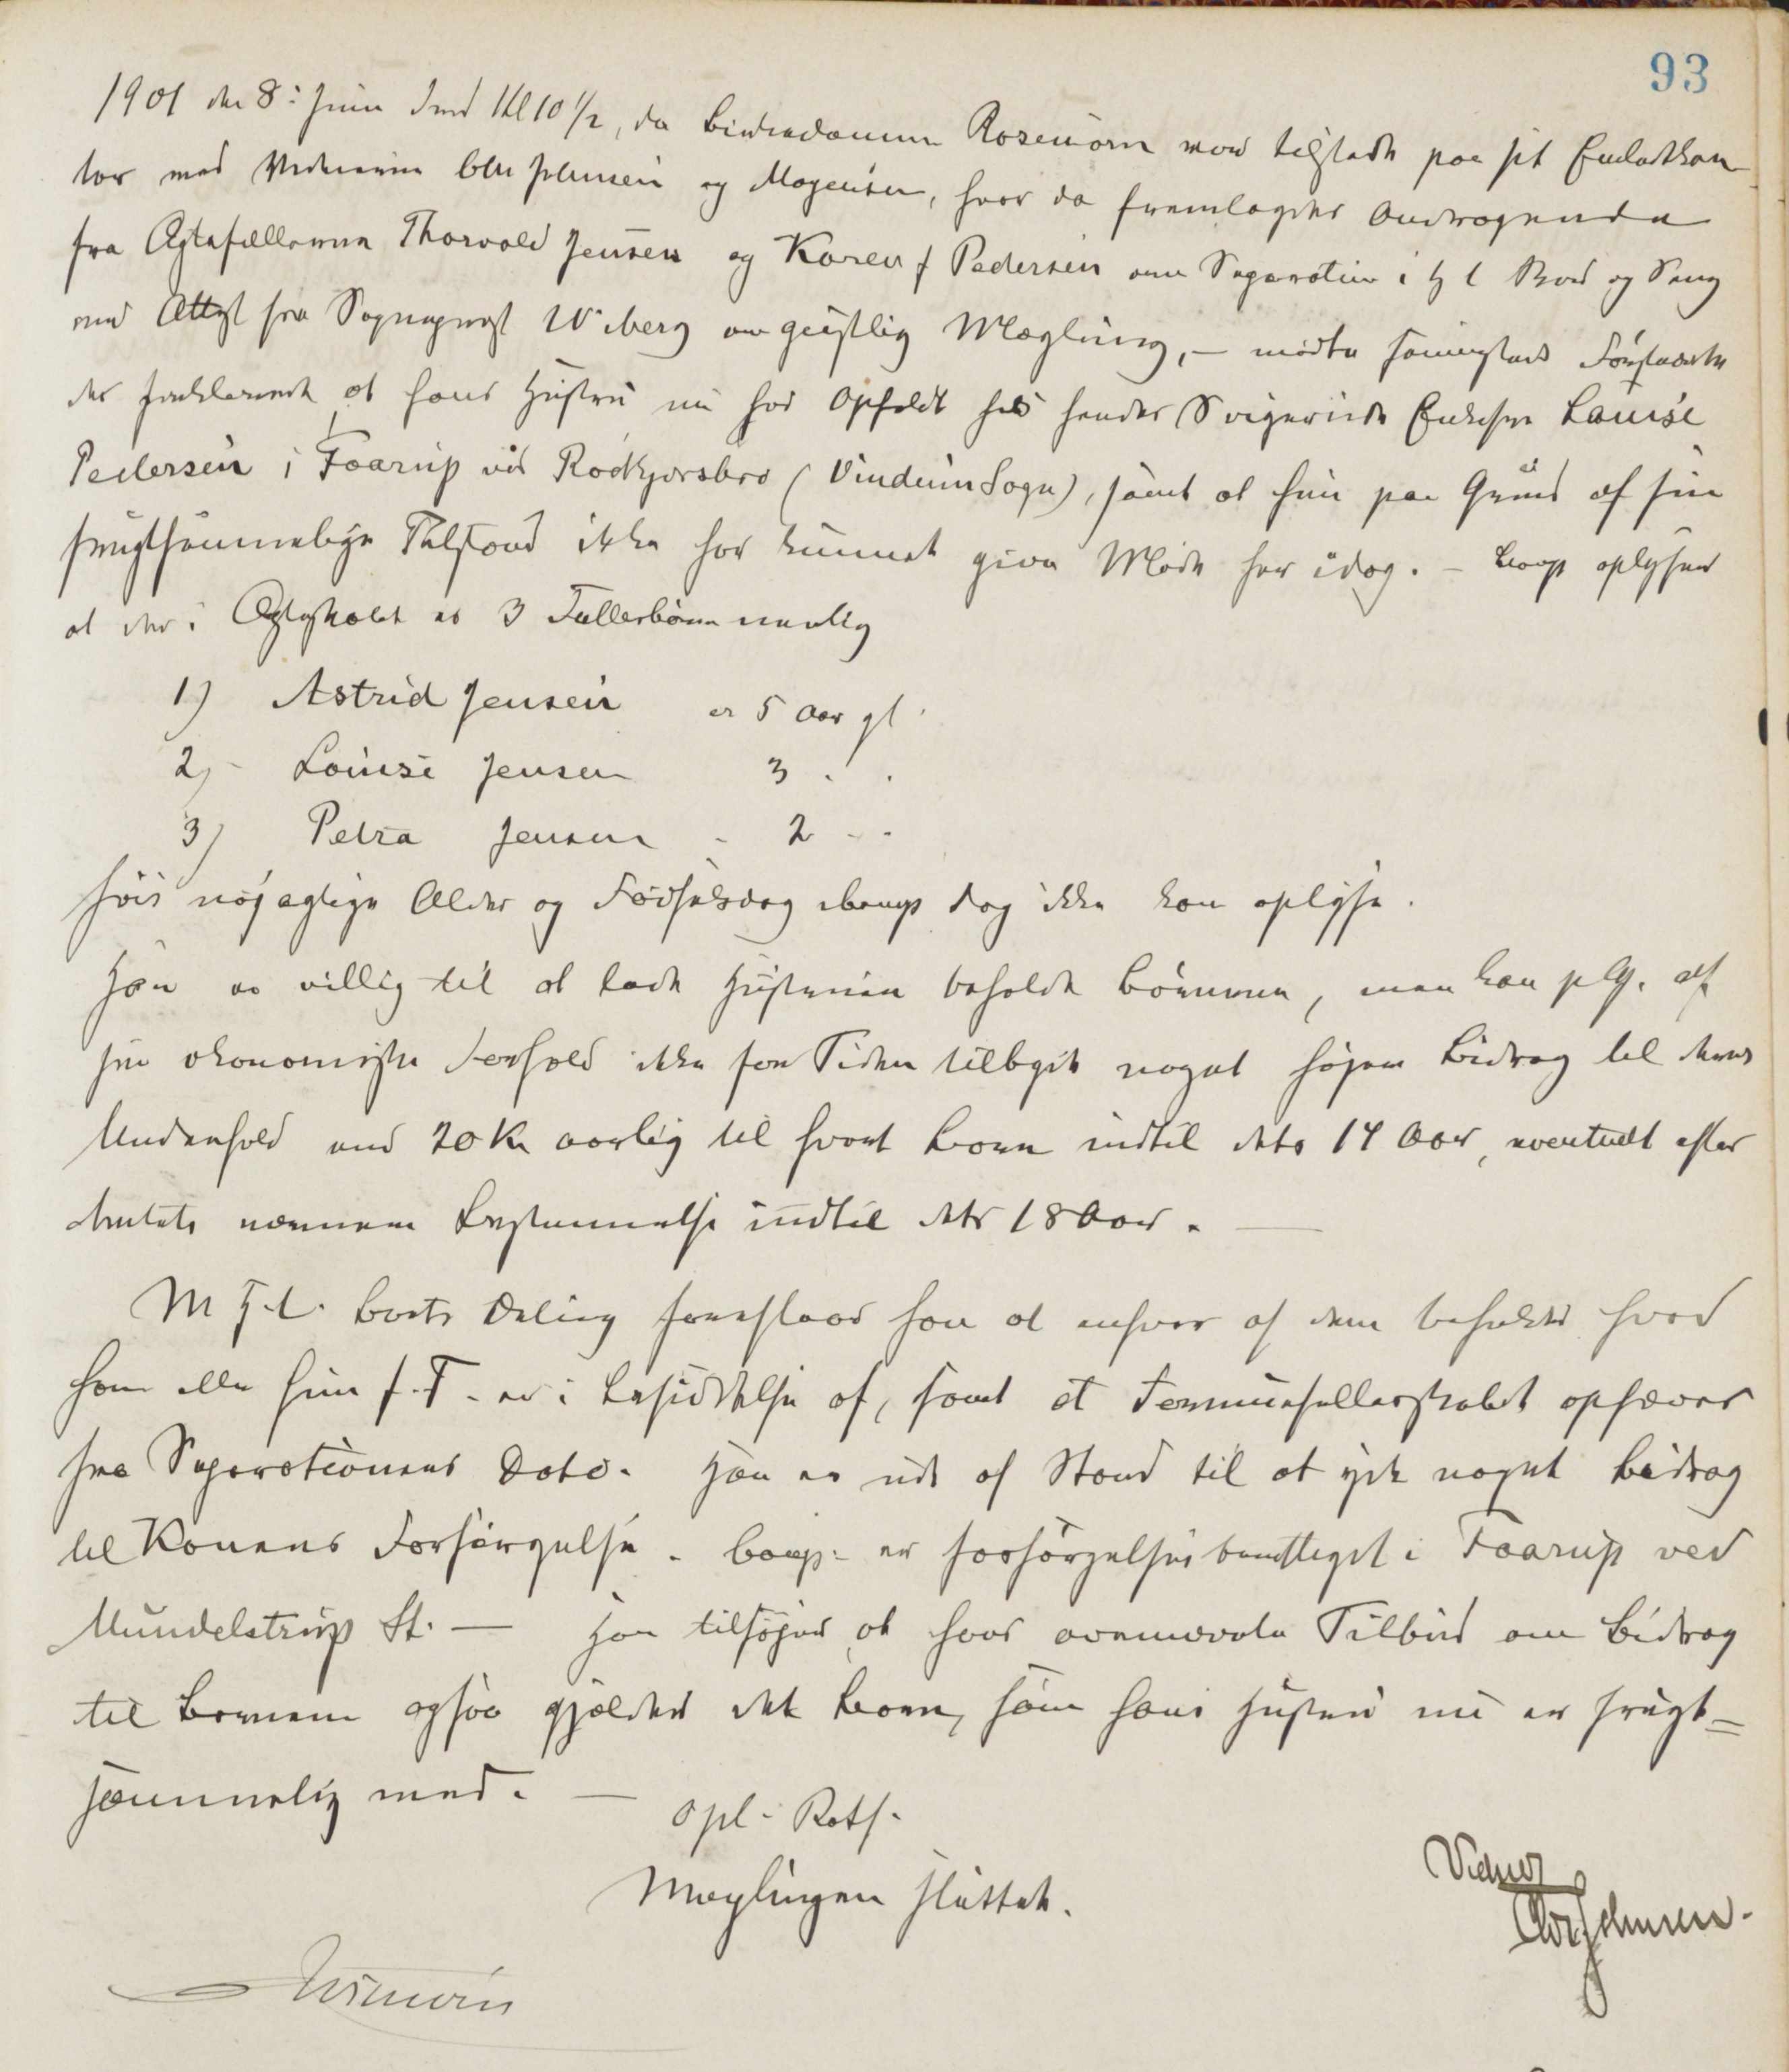 93
1901 den 8: Juni Fmd Kl 10 1/2, da Birkedommer Rosenørn var tilstede paa sit Embedskon
tor med Vidnerne Chr Johnsen og Mogensen, hvor da fremlagdes Andragende
fra Ægtefællerne Thorvald Jensen og Karen f Pedersen om Separation i H t Bord og Seng
med Attest fra Sognepræst Wiberg om geistlig Mægling, – mødte Førstnævnte
der forklarede at hans Hustru nu har Ophold hos hendes Svigerinde Enkefru Louise
Pedersen i Faarup ved Rødkjærsbro (Vindum Sogn), samt at hun paa Grund af sin
frugtsommelige Tilstand ikke har kunnet give Møde her idag. – Comp oplyser
at der i Ægteskabet er 3 Fællesbørn nemlig
1) Astrid Jensen er 5 Aar gl.
2) – Louise Jensen 3 . .
3) Petra Jensen - 2 - .
hvis nøjagtige Alder og Fødselsdag Comp dog ikke kan oplyse.
Han er villig til at lade Hustruen beholde Børnene, men kan p G. af
sin økonomiske Forhold ikke for Tiden tilbyde noget højere Bidrag til deres
Underhold end 20 Kr aarlig til hvert Barn indtil dets 14 Aar, eventuelt efter
Amtets nærmere Bestemmelse indtil dets 18 Aar. —
M H. t. Boets Deling foreslaar han at enhver af dem beholder hvad
han eller hun f. T. er i Besiddelse af, samt at Formuefællesskabet ophæves
fra Separationens Dato. Han er ude af Stand til at yde noget Bidrag
til Konens Forsørgelse. Comp. er forsørgelsesberettiget i Faarup ved
Mundelstrup St. — Han tilføjer at hans ovennævnte Tilbud om Bidrag
til Børnene ogsaa gjælder det Barn, som hans Hustru nu er frugt=
sommelig med. —
Opl. Rats.
Mæglingen sluttet.
Vidner
Chr Johnsen.
Rosenørn